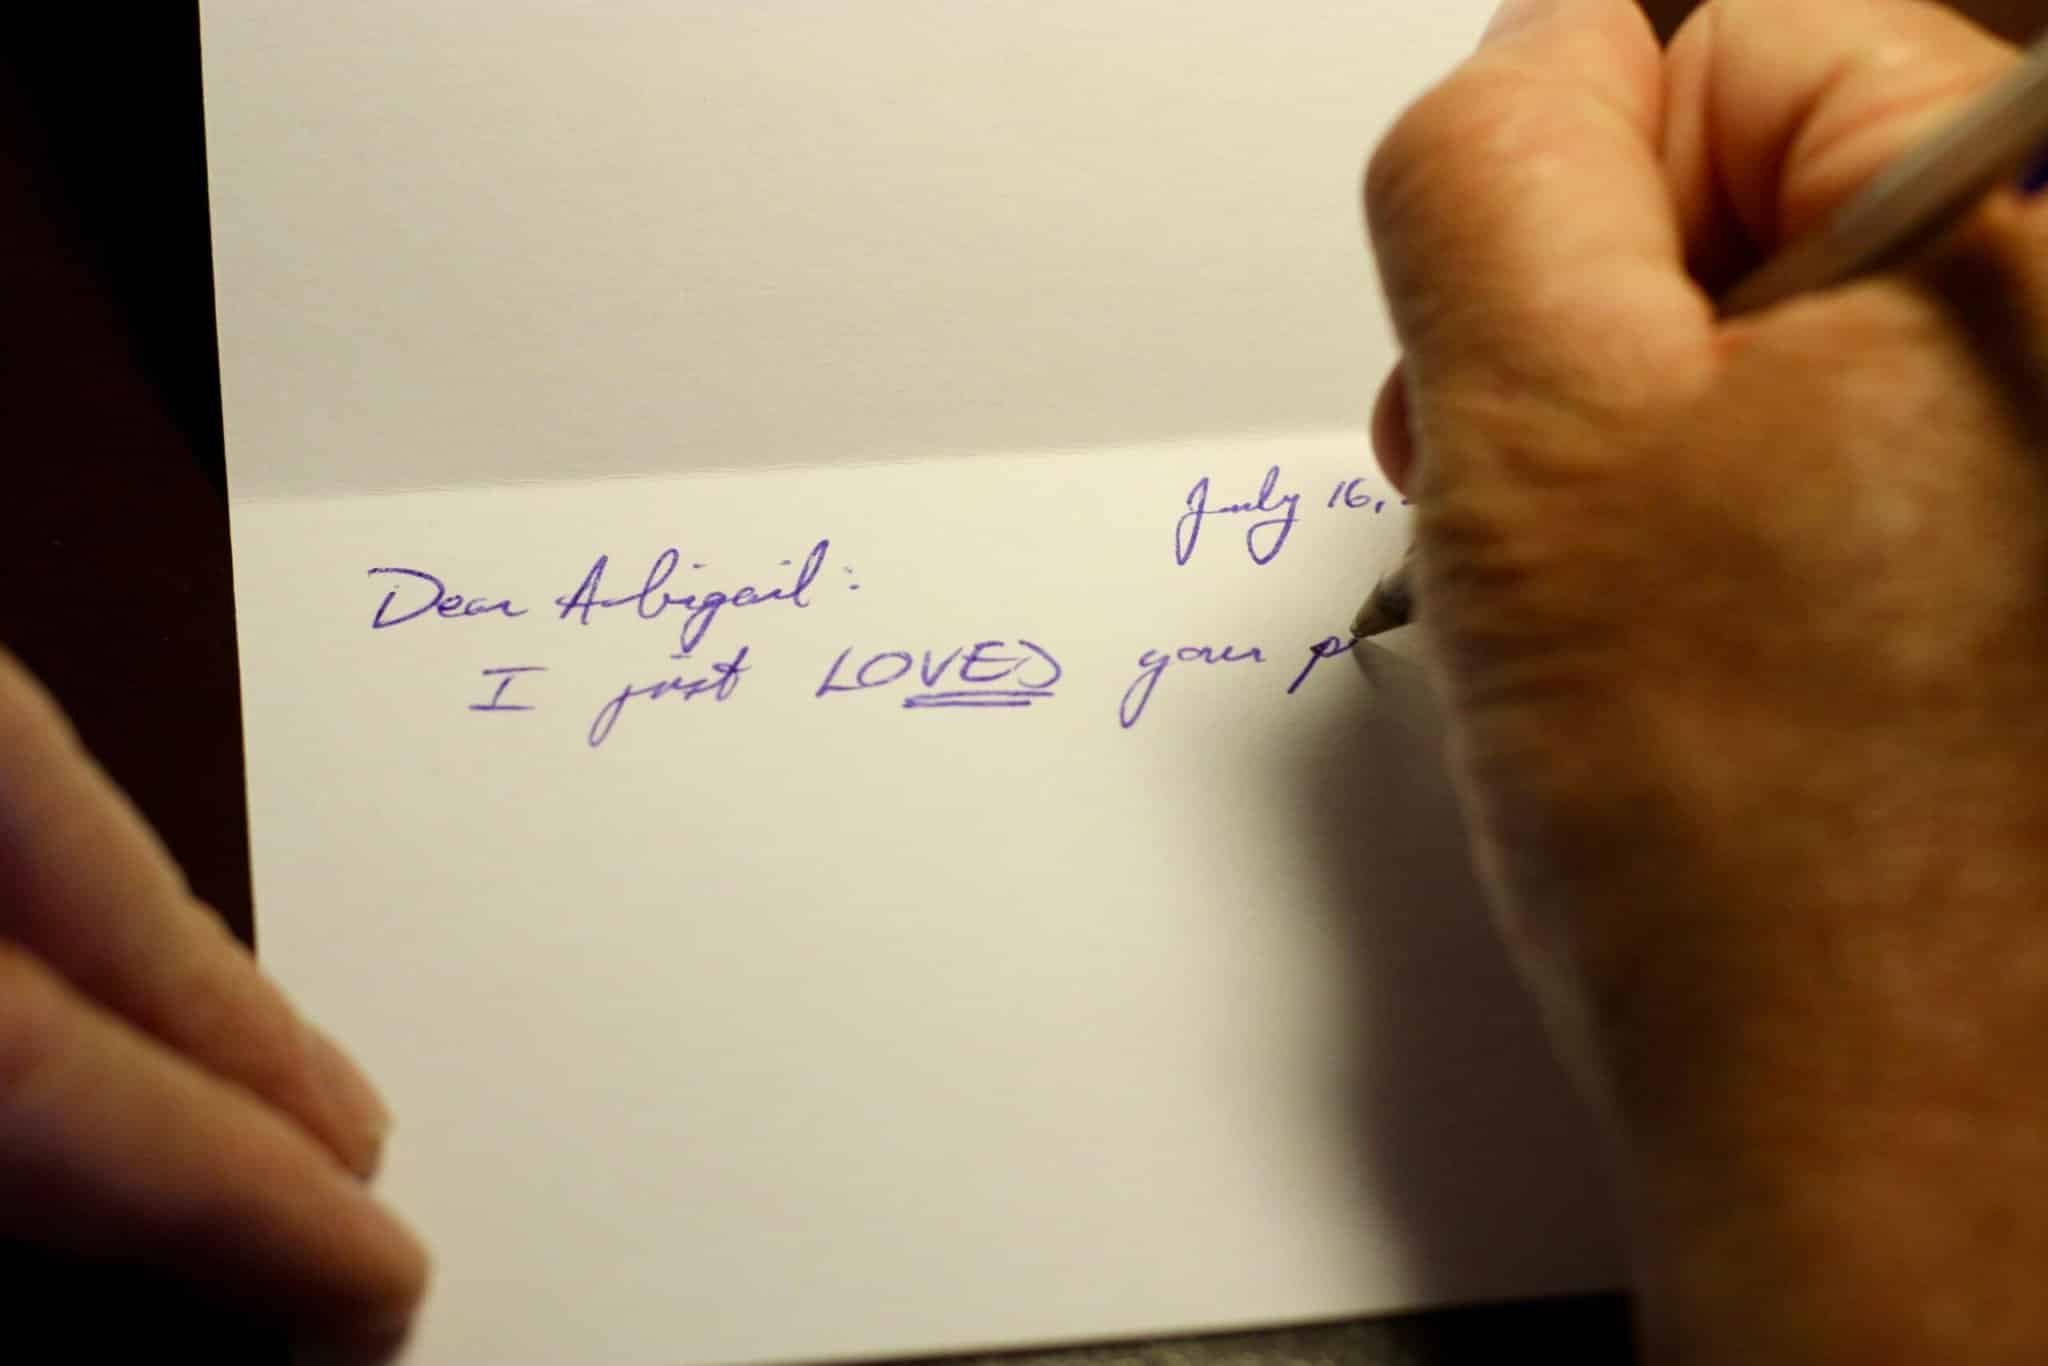 July 16,
Dear Abigail:
I just LOVED your p